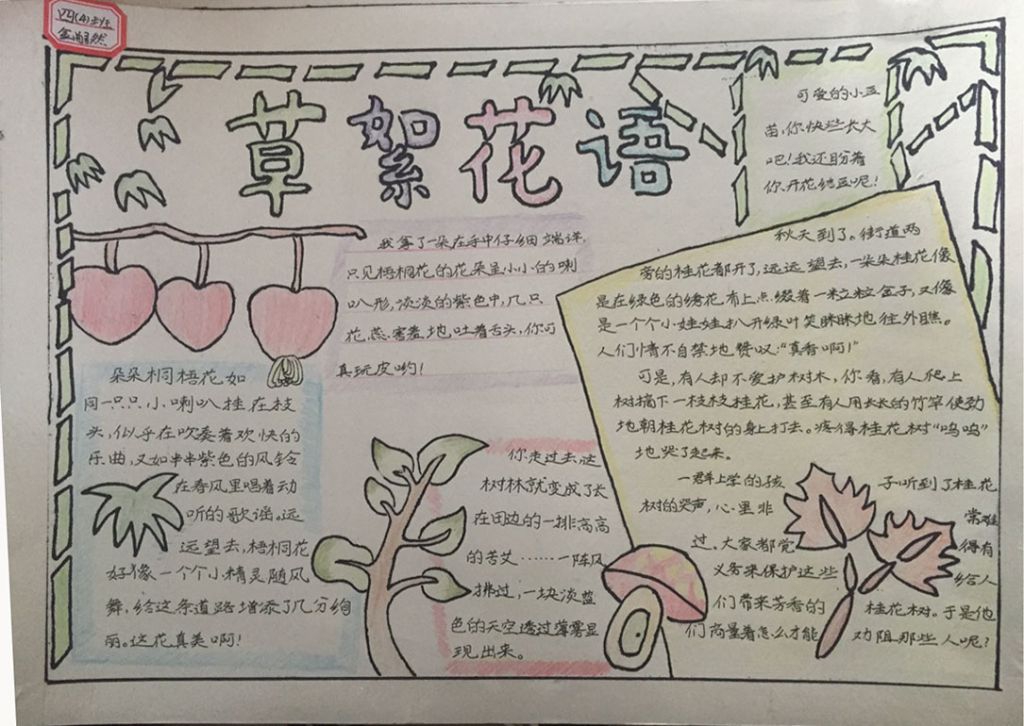 四(4)班
草絮花语
可爱的小豆
苗,你快些长大
吧!我还盼着
你开花结豆呢!
我拿了一朵在手中仔细端详,
只见梧桐花的花朵呈小小的喇
叭形,淡淡的紫色中,几只
花蕊害羞地吐着舌头,你可
真玩皮哟!
朵朵桐梧花如
同一只只小喇叭挂在枝
头,似乎在吹奏着欢快的
乐曲,又如串串紫色的风铃
在春风里唱着动
听的歌谣。远
远望去,梧桐花
好像一个个小精灵随风
舞,给这条道路增添了几分绚
丽。这花真美啊!
你走过去,这
树林就变成了长
在田边的一排高高
的苦艾……一阵风
拂过,一块淡蓝
色的天空透过薄雾显
现出来。
秋天到了。街道两
旁的桂花都开了,远远望去,一朵朵桂花像
是在绿色的绣花布上点缀着一粒粒金子,又像
是一个个小娃娃扒开绿叶笑眯眯地往外瞧。
人们情不自禁地赞叹:“真香啊!”
可是,有人却不爱护树木,你看,有人爬上
树摘下一枝枝桂花,甚至有人用长长的竹竿使劲
地朝桂花树的身上打去。疼得桂花树“呜呜”
地哭了起来。
一群上学的孩 子听到了桂花
树的哭声,心里非 常难
过,大家都觉 得有
义务来保护这些 给人
们带来芳香的 桂花树。于是他
们商量着怎么才能 劝阻那些人呢?